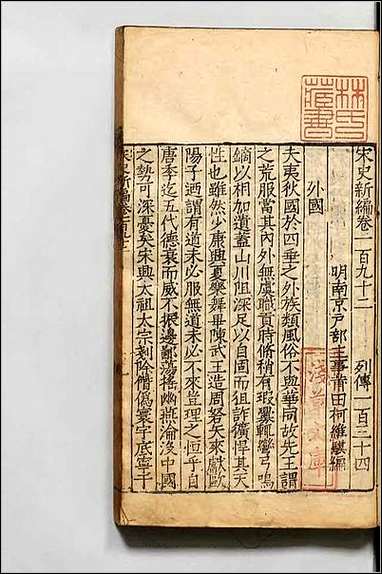 宋史新編卷一百九十二　列傳一百三十四
明南京戶部主事莆田柯維騏編
外國
夫夷狄國於四垂之外族類風俗不與華同故先王謂
之荒服當其內外無虞職貢時脩稍有瑕釁輒彎弓鳴
鏑以相加遺蓋山川阻深足以自固而狙詐獷悍其天
性也雖然少康興夏樂舞畢陳武王造周砮矢來獻歐
陽子迺謂有道未必服無道未必不來豈理之恒乎自
唐季迄五代德衰而威不振邊鄙蕩搖幽燕淪沒中國
之勢可深憂矣宋興太祖太宗剗除僭偽寰宇底寧于
林氏藏書
淺草文庫